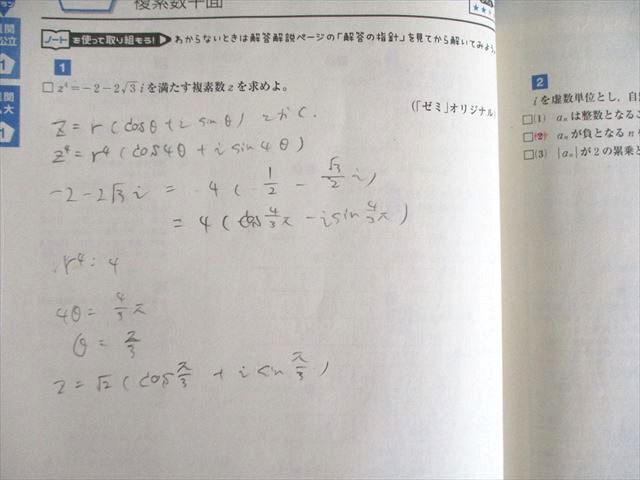 複素数平面
ノートを使って取り組もう! わからないときは解答解説ページの「解答の指針」を見てから解いてみよう。
1
□ z⁴=-2-2√3 i を満たす複素数 z を求めよ。
(「ゼミ」オリジナル)
z = r (cosθ + i sinθ) とおく.
z⁴ = r⁴ (cos4θ + i sin4θ)
-2-2√3 i = 4 ( 1/2 - √3/2 i )
= 4 ( cos 4/3 π - i sin 4/3 π )
r⁴ = 4
4θ = 4/3 π
θ = π/3
z = √2 ( cos π/3 + i sin π/3 )
2
i を虚数単位とし,
□(1) aₙ は整数となるこ
□(2) aₙ が負となる n
□(3) |aₙ| が2の累乗と